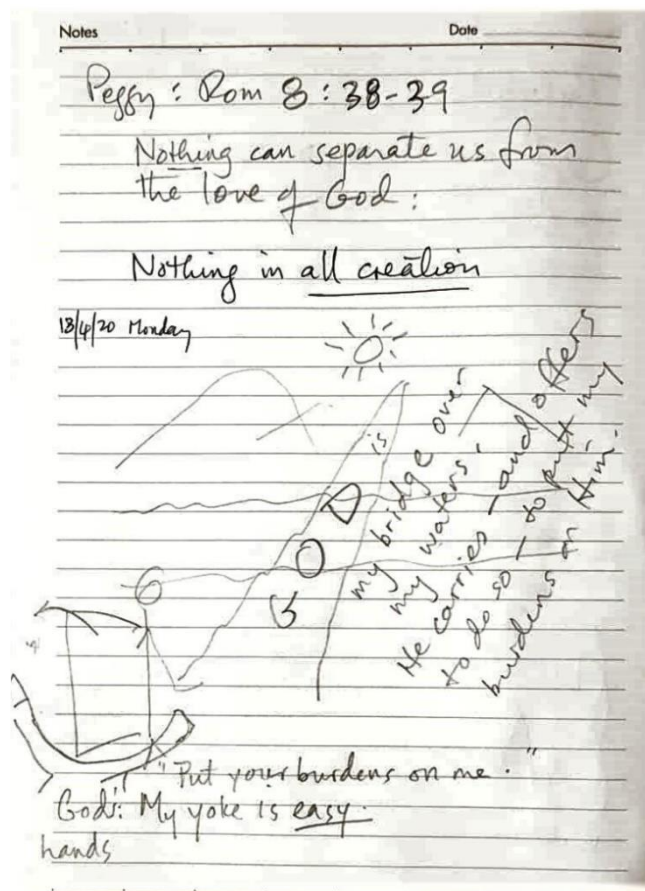 Notes
Date
Peggy : Rom 8 : 38-39
Nothing can separate us from
the love of God :
Nothing in all creation
13/4/20 Monday
GOD
is
my bridge over
my waters.
He carries - and offers
to do so - to put my
burdens on Him.
"Put your burdens on me."
God's: My yoke is easy.
hands